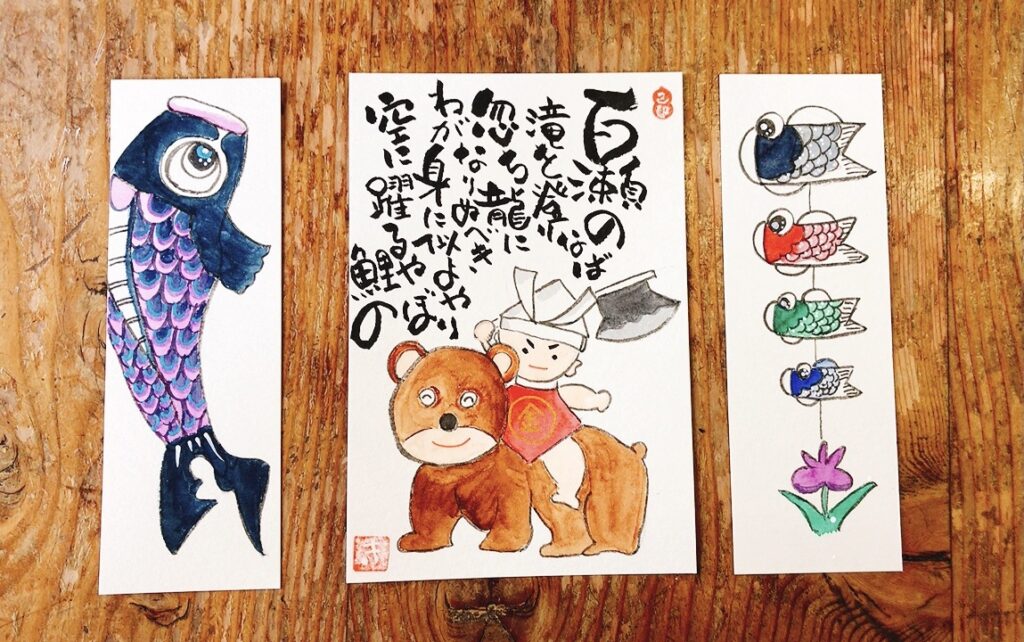 百瀬の
滝を登りなば
忽ち龍に
なりぬべき、
わが身に似よや
空に躍るや
鯉のぼり